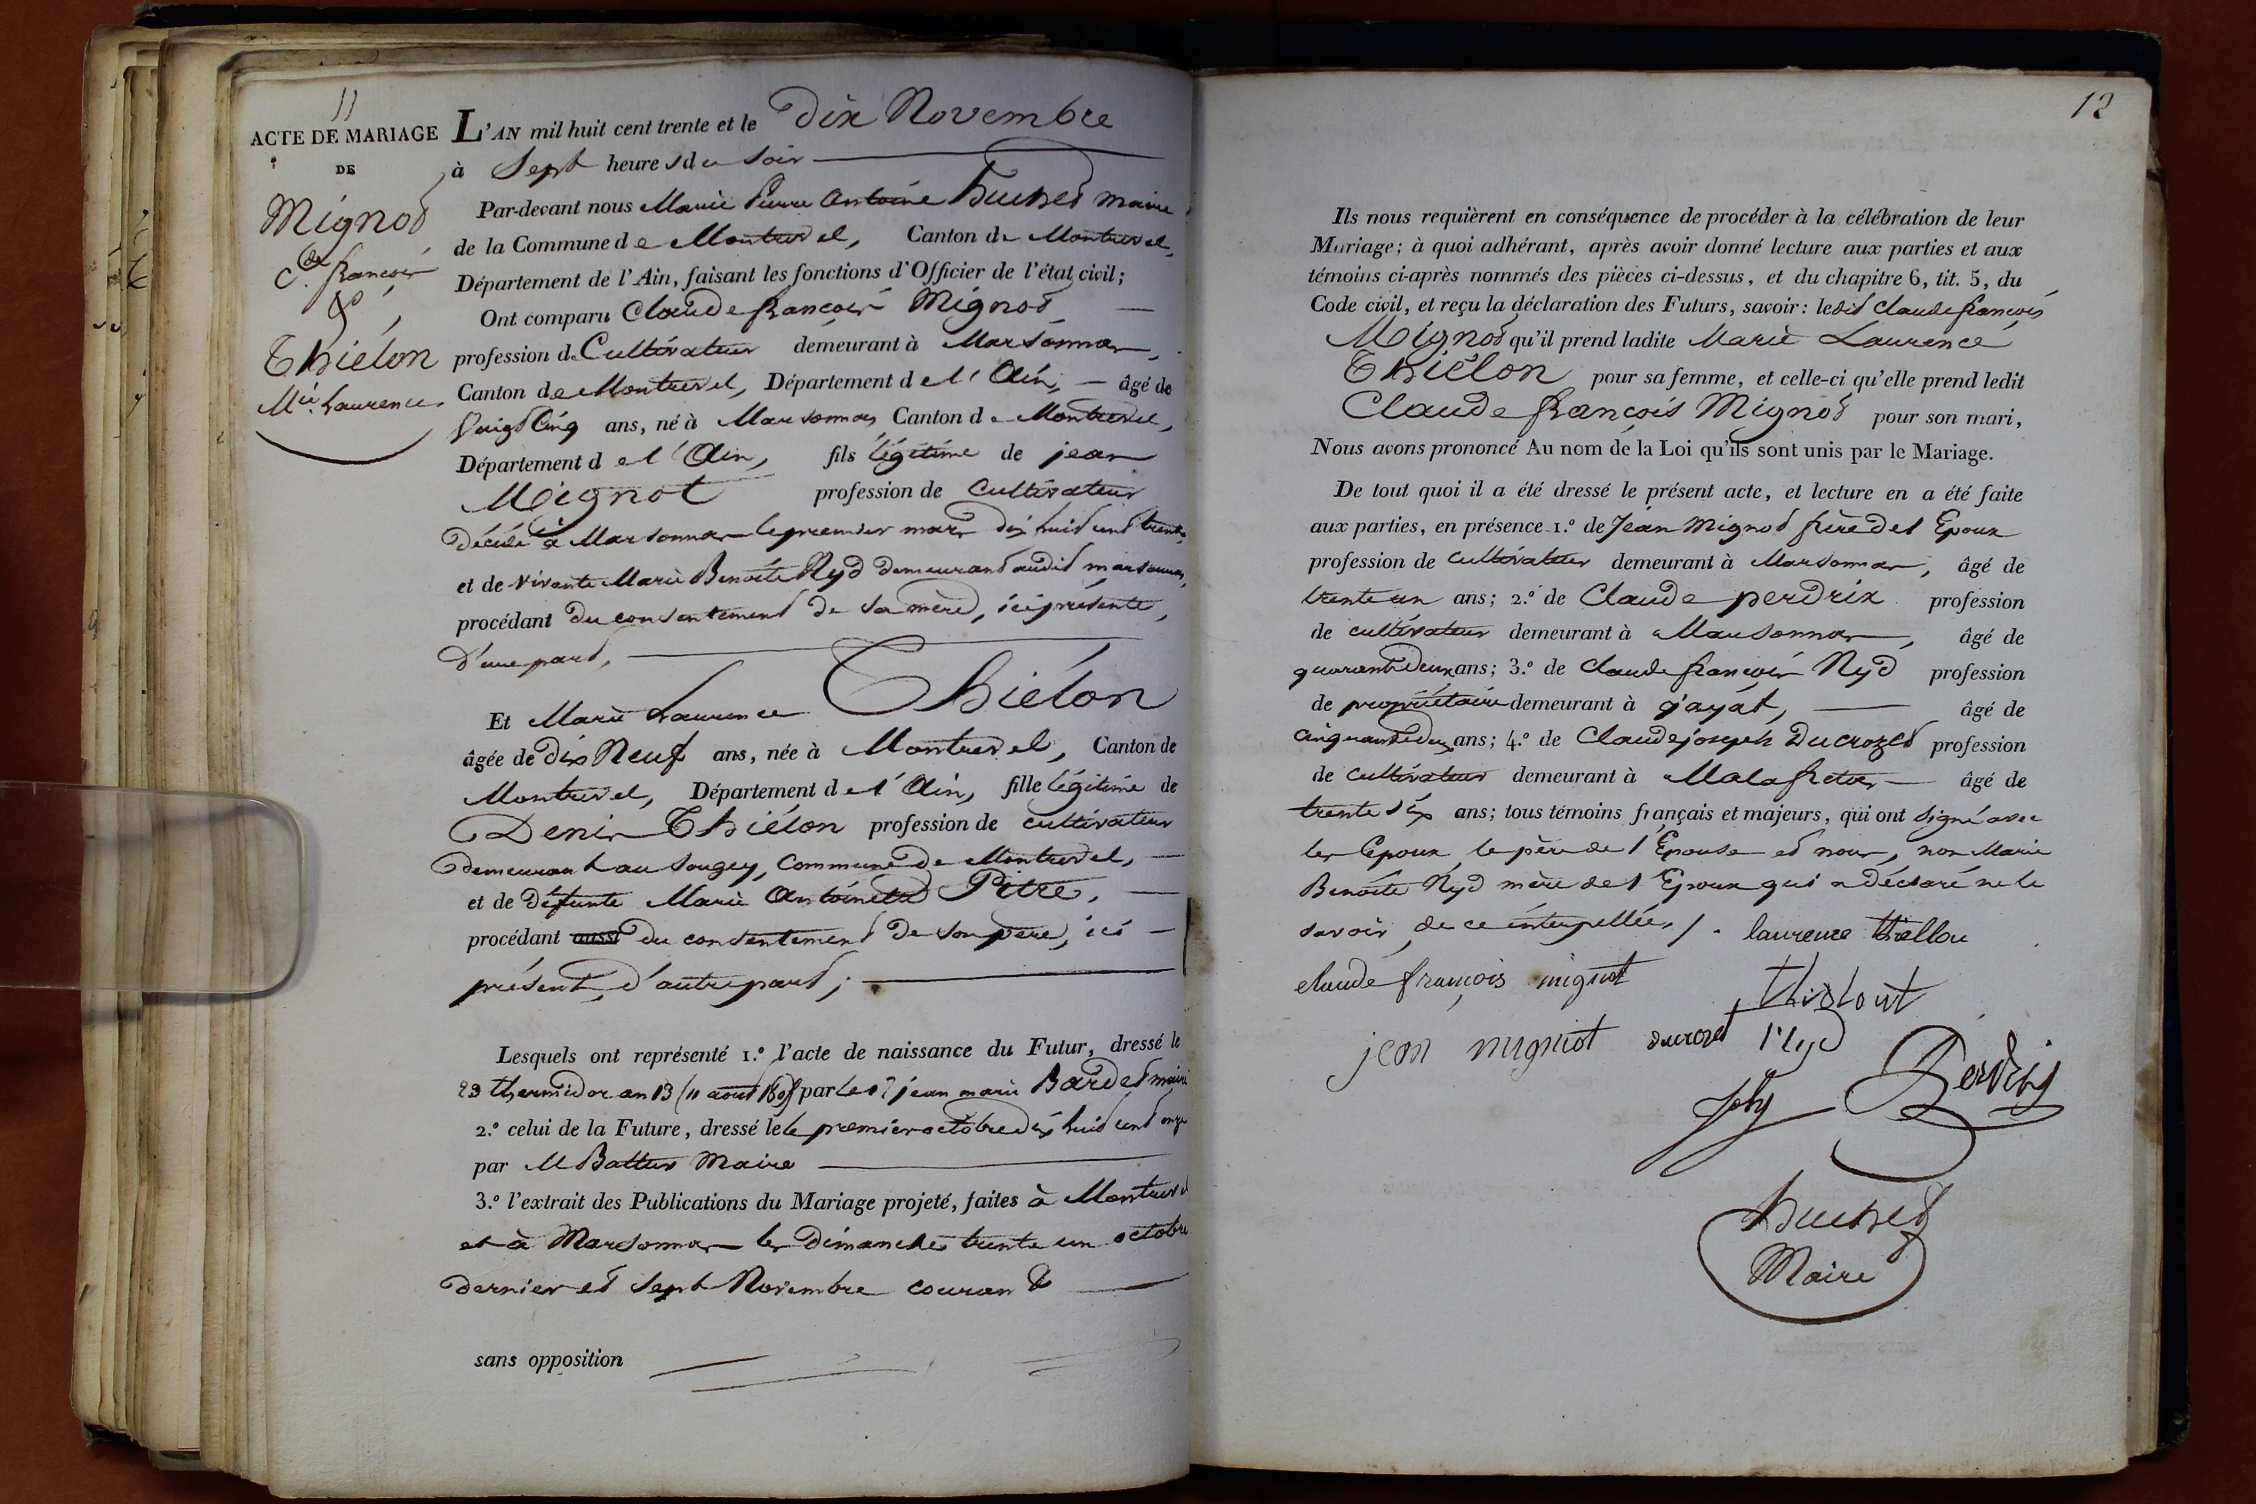 11
ACTE DE MARIAGE
DE
Mignot
Cde. françois
&
Thiélon
Mie. Laurence
L'AN mil huit cent trente et le Dix Novembre
à Sept heures du soir
Par-devant nous Marie Pierre Antoine Huchet maire
de la Commune de Montrevel, Canton de Montrevel,
Département de l'Ain, faisant les fonctions d'Officier de l'état civil;
Ont comparu Claude françois Mignot
profession de Cultivateur demeurant à Marsonnas,
Canton de Montrevel, Département de l'Ain, âgé de
vingt Cinq ans, né à Marsonnas Canton de Montrevel,
Département de l'Ain, fils légitime de jean
Mignot profession de Cultivateur
Décédé à Marsonnas le premier mars dix huit cent trente,
et de vivante Marie Benoite Nyd demeurant audit marsonnas,
procédant du consentement de sa mère, ici présente,
D'une part,
Et Marie Laurence Thiélon
âgée de dix Neuf ans, née à Montrevel, Canton de
Montrevel, Département de l'Ain, fille légitime de
Denis Thiélon profession de cultivateur
demeurant au Sougey, Commune de Montrevel,
et de défunte Marie Antoinette Pitre,
procédant aussi du consentement de son père, ici
présent, d'autre part;
Lesquels ont représenté 1.º l'acte de naissance du Futur, dressé le
23 thermidor an 13 (11 août 1805) par le Sr jean marie Bardet maire
2.º celui de la Future, dressé le le premier octobre dix huit cent onze
par M Battur Maire
3.º l'extrait des Publications du Mariage projeté, faites à Montrevel
et à Marsonnas les Dimanches trente un octobre
dernier et Sept Novembre courant
sans opposition
12
Ils nous requièrent en conséquence de procéder à la célébration de leur
Mariage; à quoi adhérant, après avoir donné lecture aux parties et aux
témoins ci-après nommés des pièces ci-dessus, et du chapitre 6, tit. 5, du
Code civil, et reçu la déclaration des Futurs, savoir: ledit Claude françois
Mignot qu'il prend ladite Marie Laurence
Thiélon pour sa femme, et celle-ci qu'elle prend ledit
Claude françois Mignot pour son mari,
Nous avons prononcé Au nom de la Loi qu'ils sont unis par le Mariage.
De tout quoi il a été dressé le présent acte, et lecture en a été faite
aux parties, en présence 1.º de Jean Mignot frère de l'Epoux
profession de cultivateur demeurant à Marsonnas, âgé de
trente un ans; 2.º de Claude perdrix profession
de cultivateur demeurant à Marsonnas, âgé de
quarante Deux ans; 3.º de Claude françois Nyd profession
de propriétaire demeurant à jayat, âgé de
Cinquante deux ans; 4.º de Claude joseph Ducrozet profession
de cultivateur demeurant à Malafretas âgé de
trente Six ans; tous témoins français et majeurs, qui ont signé avec
les Epoux, le père de l'Epouse et nous, non Marie
Benoite Nyd mère de l'Epoux qui a déclaré ne le
savoir, de ce interpellée, /.
laurence thiellon
claude françois mignot
thielont
jean migniot ducrozet Nyd
Perdrix
Huchet
Maire